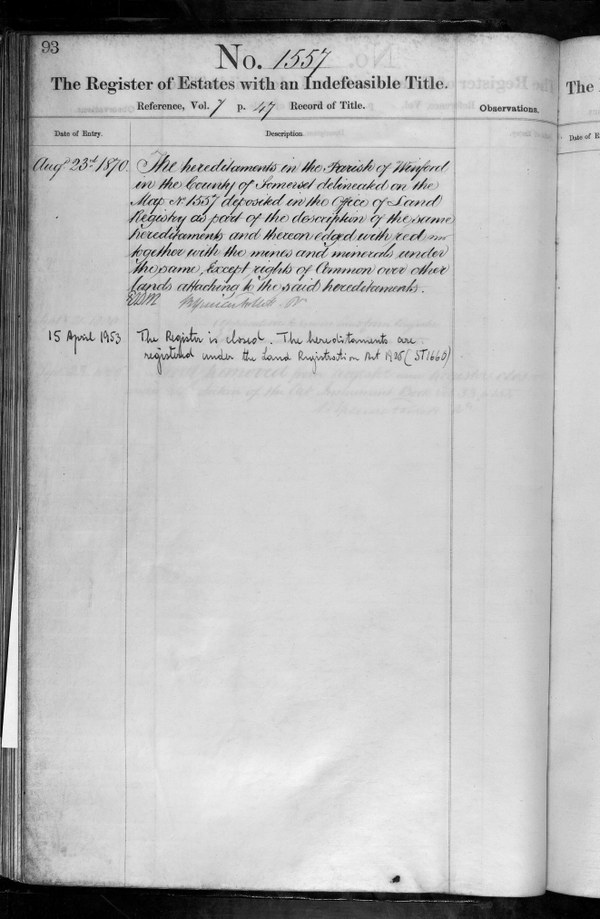 93
No. 1557
The Register of Estates with an Indefeasible Title.
Reference, Vol. 7 p. 47 Record of Title.
Observations.
Date of Entry.
Description.
Augt. 23rd 1870.
The hereditaments in the Parish of Winford
in the County of Somerset delineated on the
Map No 1557 deposited in the Office of Land
Registry as part of the description of the same
hereditaments and thereon edged with red
together with the mines and minerals under
the same, Except rights of Common over other
lands attaching to the said hereditaments.
15 April 1953
The Register is closed. The hereditaments are
registered under the Land Registration Act 1925 (ST1660)
The
Date of E